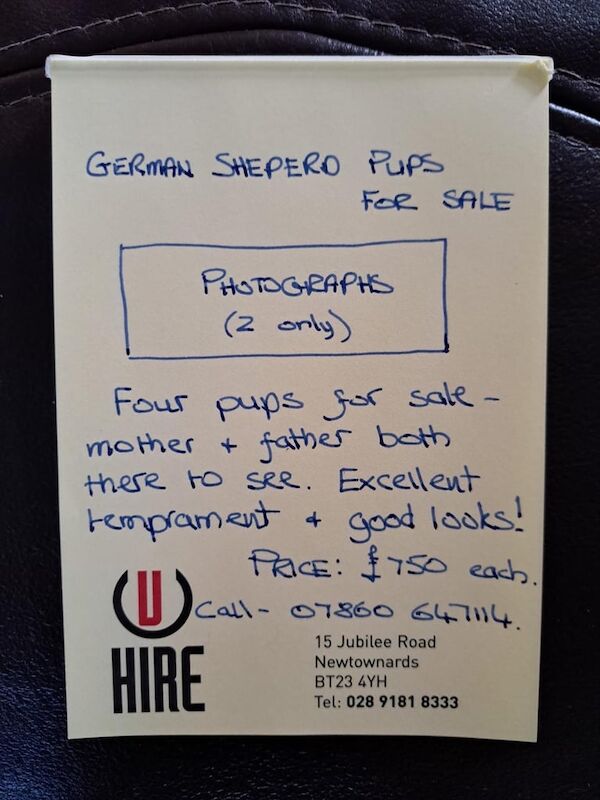 GERMAN SHEPERD PUPS
FOR SALE
PHOTOGRAPHS
(2 only)
Four pups for sale -
mother + father both
there to see. Excellent
temprament + good looks!
PRICE: £750 each.
Call - 07860 647114.
U
HIRE
15 Jubilee Road
Newtownards
BT23 4YH
Tel: 028 9181 8333